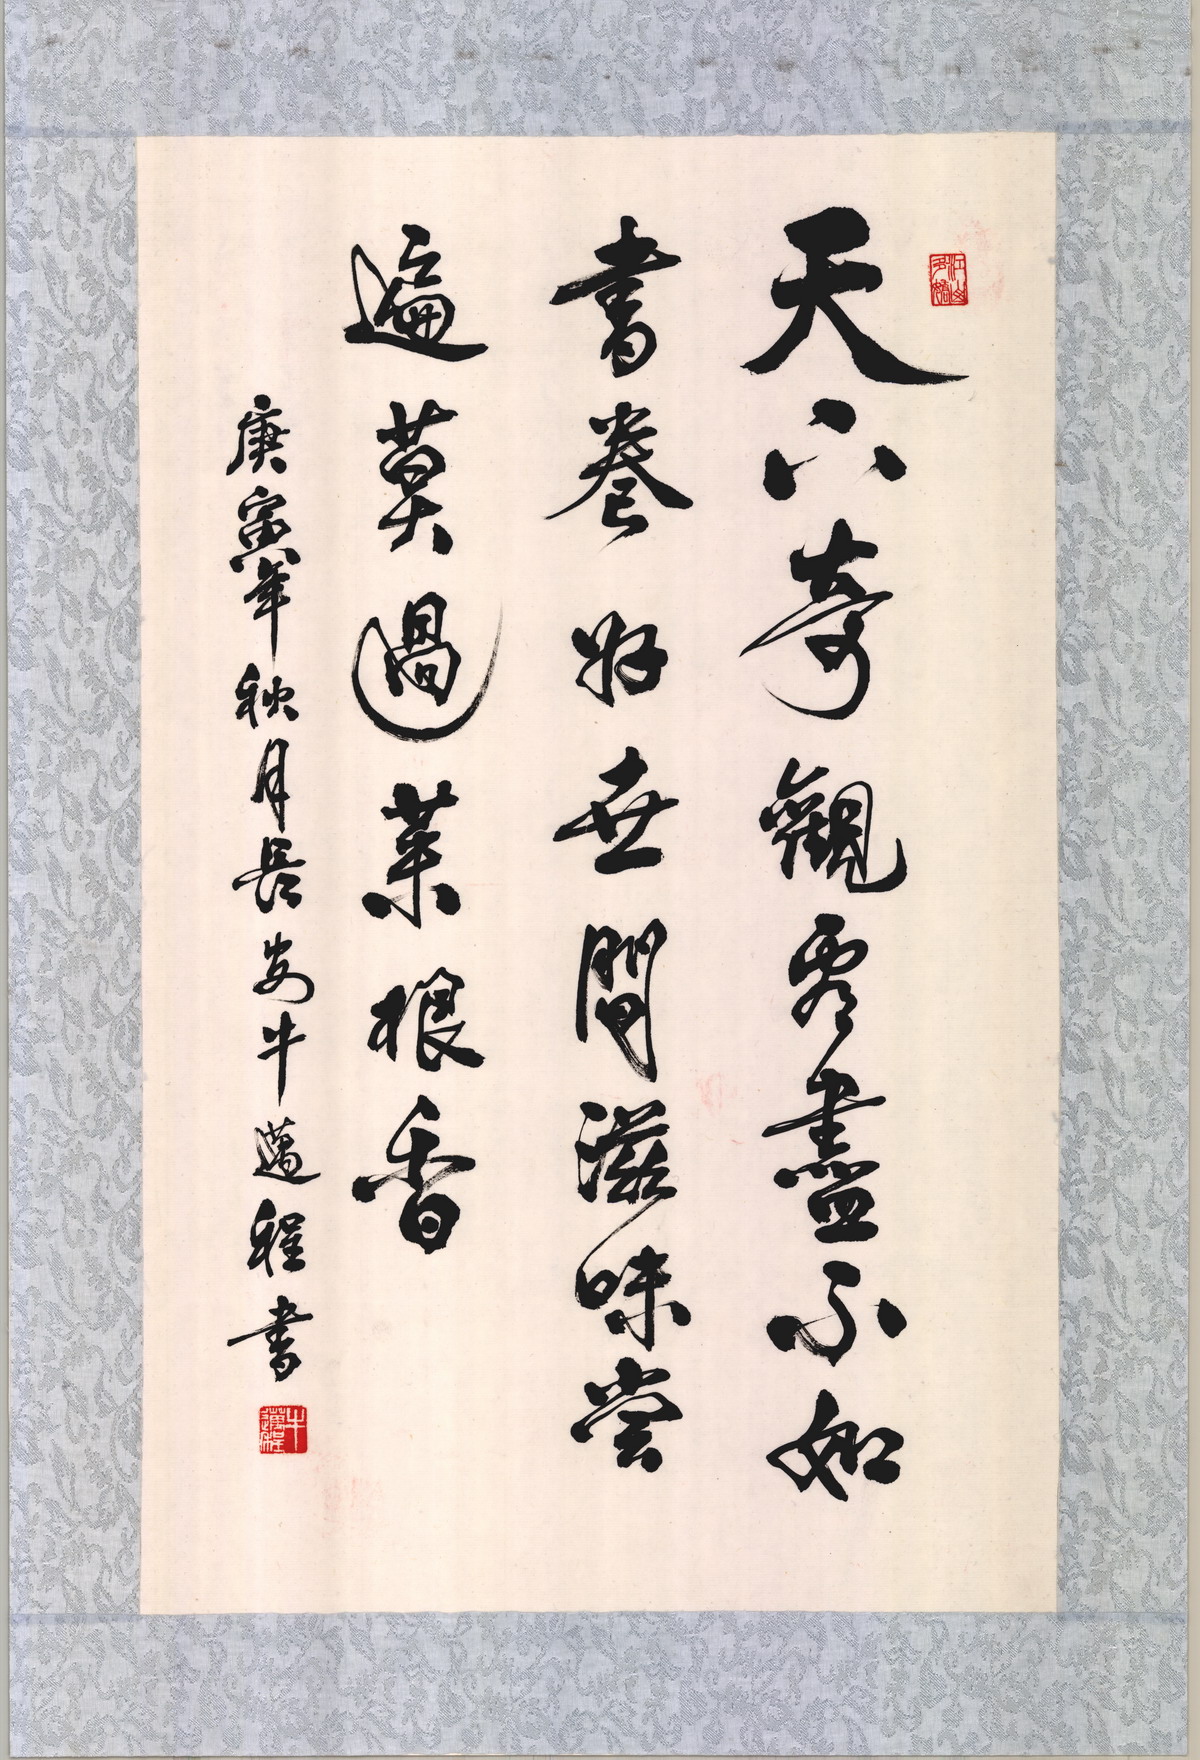 江山多嬌
天下奇觀看盡不如
書卷好世間滋味嘗
遍莫過菜根香
庚寅年秋月長安牛邁程書
牛邁程